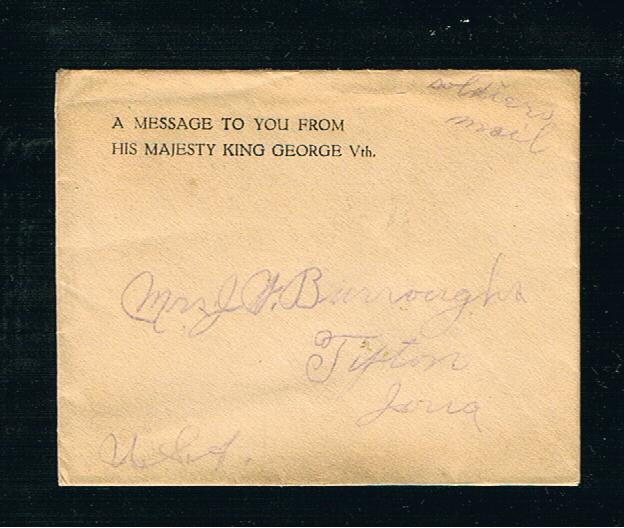 soldiers
mail
A MESSAGE TO YOU FROM
HIS MAJESTY KING GEORGE Vth.
Mrs J. F. Burroughs
Tipton
Iowa
U.S.A.